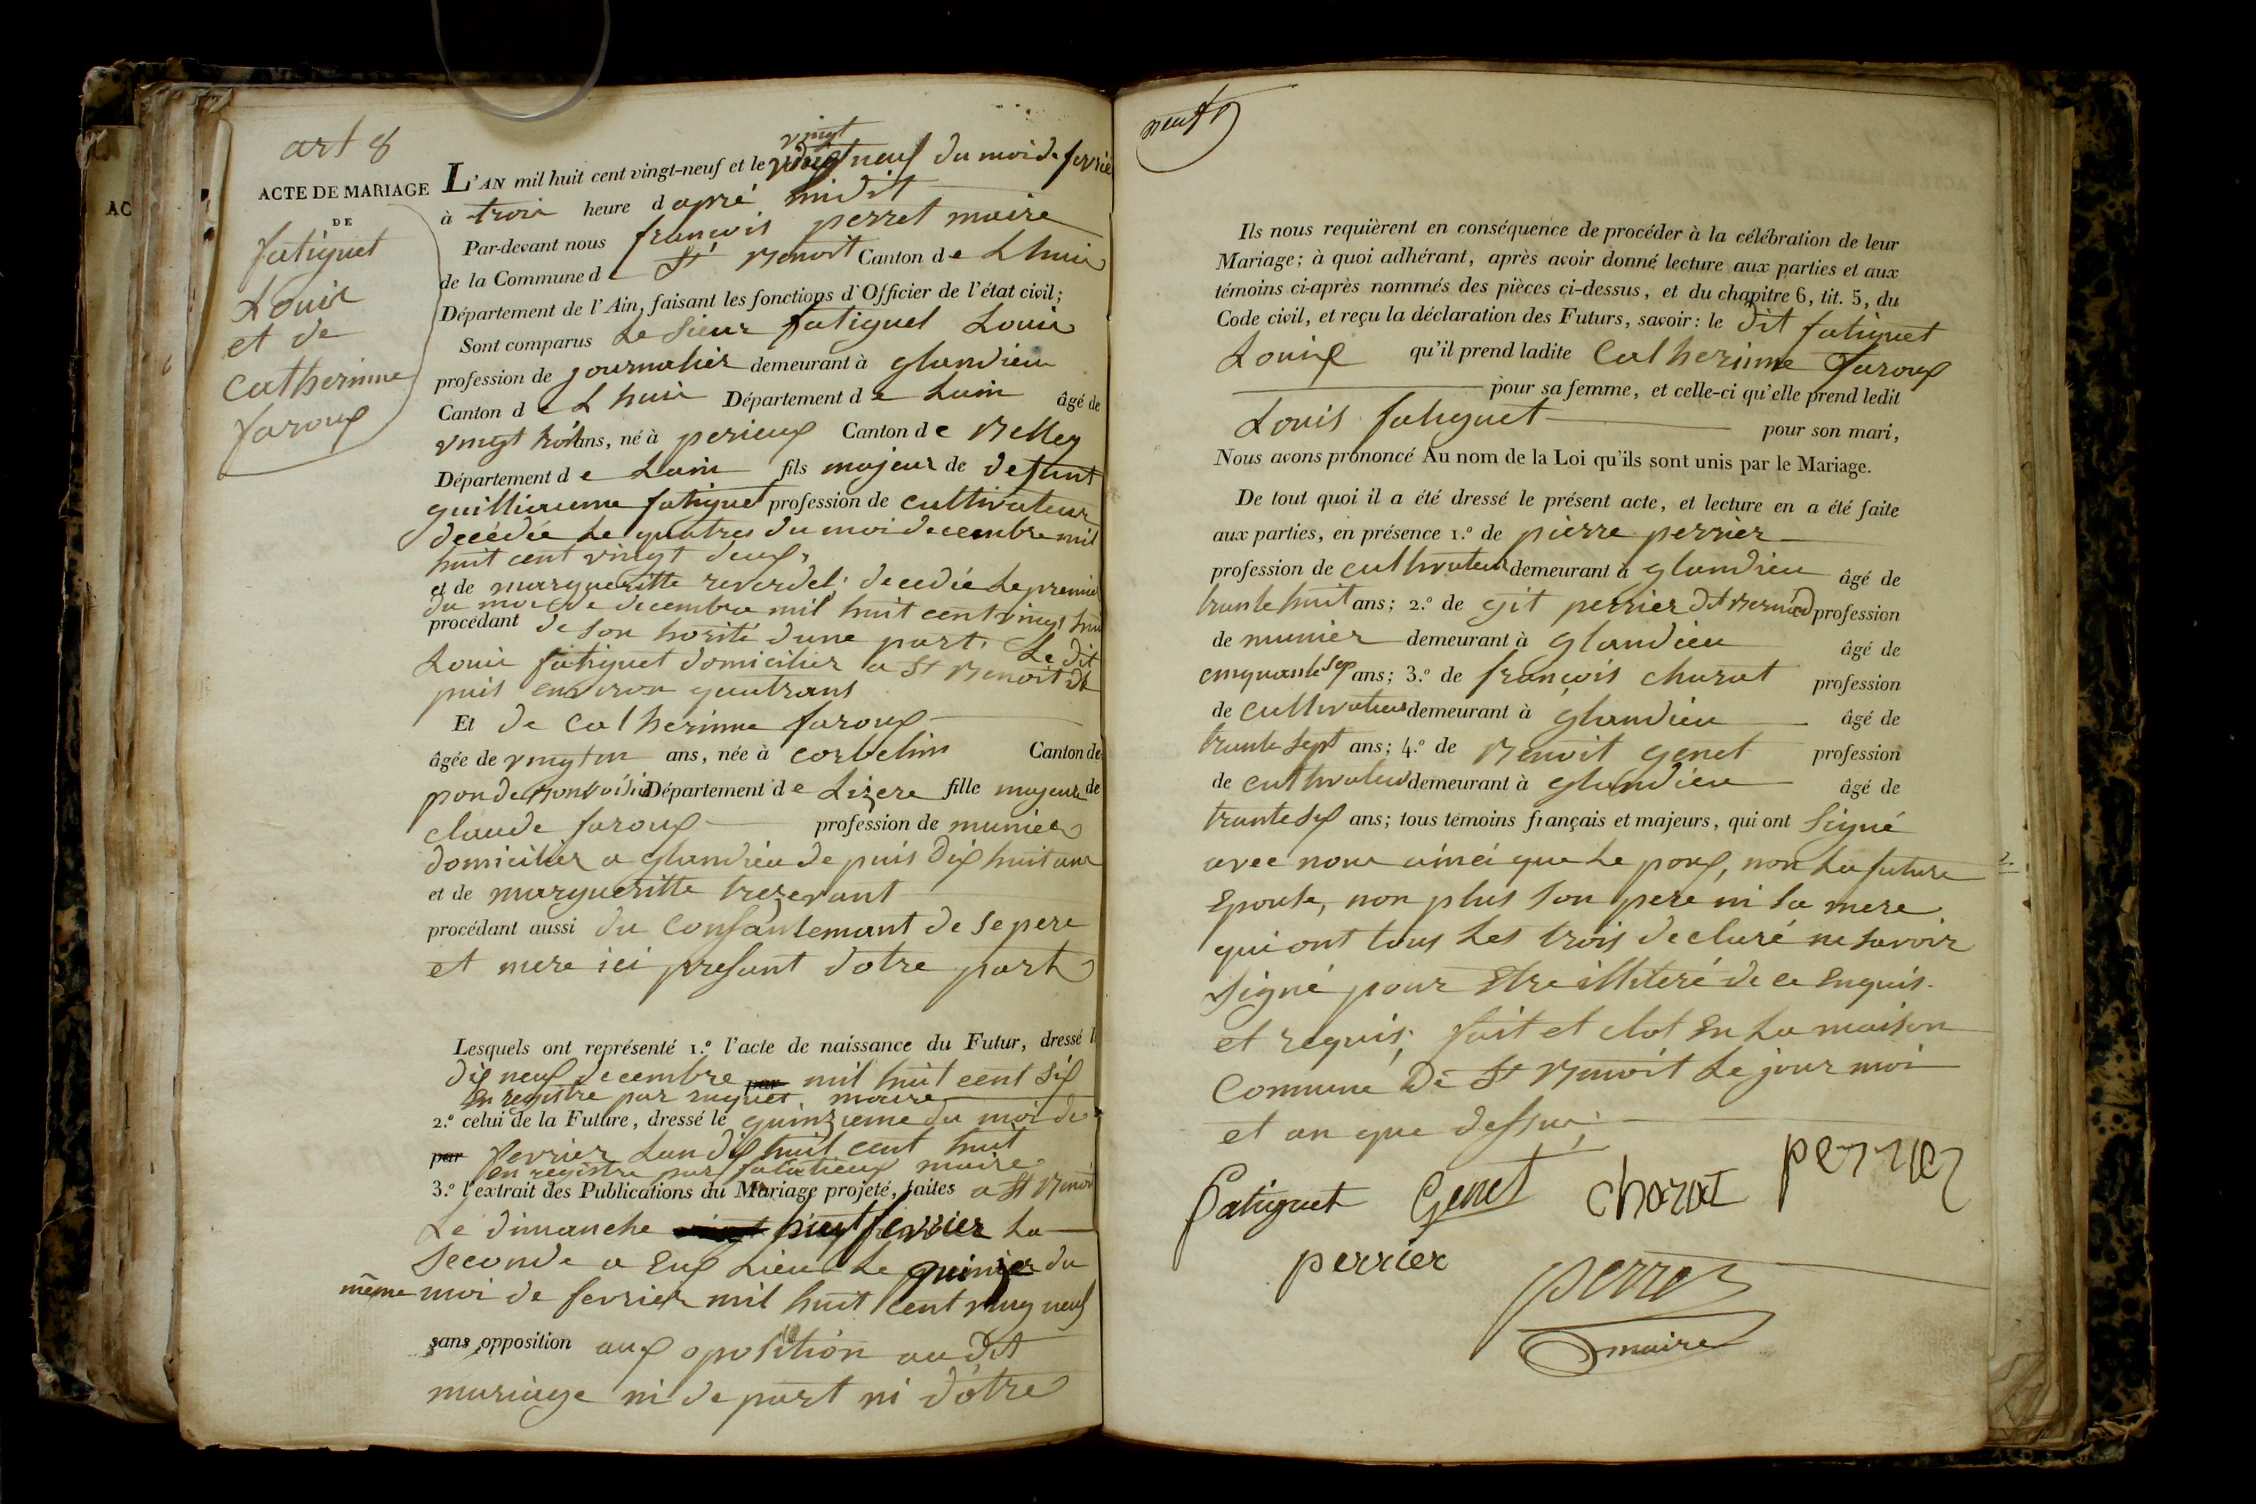 art 8
ACTE DE MARIAGE
DE
fatiguet
Louis
et de
Catherinne
faroux
L'AN mil huit cent vingt-neuf et le vingt neuf du moi de fevrié
à trois heure d apré midit
Par-devant nous francois perret maire
de la Commune d e St Benoit Canton d e Lhuis
Département de l'Ain, faisant les fonctions d'Officier de l'état civil;
Sont comparus Le Sieur fatiguet Louis
profession de journalier demeurant à glandieu
Canton d e Lhuis Département d e Lain âgé de
vingt trois ans, né à perieux Canton d e Belley
Département d e Lain fils majeur de defunt
guilliaume fatiguet profession de cultivateur
decédée Le quatres du moi decembre mil
huit cent vingt deux,
et de margueritte reverdel; decedée Le premié
du moi de decembre mil huit cent vingt huit
procédant de son horité dune part. Le dit
Louis fatiguet domicilier a St Benoit de
puis environ quatrans
Et de Catherinne faroux
âgée de vingt un ans, née à corbelin Canton de
pon de bonvoisin Département d e Lizere fille majeure de
claude faroux profession de munier
domicilier a glandieu de puis dix huit ans
et de margueritte trezerant
procédant aussi du Consantemant de se pere
et mere ici presant dotre part
Lesquels ont représenté 1.º l'acte de naissance du Futur, dressé l
dix neuf decembre par mil huit cent six
en registre par ruguet maire
2.º celui de la Future, dressé le quinzieme du moi de
par fevrier Lan dix huit cent huit
en registre par maire
3.º l'extrait des Publications du Mariage projeté, faites a St Benoit
Le dimanche huit fevrier La
Seconde a Eux Lieu Le quinze du
même moi de fevrier mil huit cent ving neuf
sans opposition aux oposition au dit
mariage ni de part ni dotre
neuf
Ils nous requièrent en conséquence de procéder à la célébration de leur
Mariage; à quoi adhérant, après avoir donné lecture aux parties et aux
témoins ci-après nommés des pièces ci-dessus, et du chapitre 6, tit. 5, du
Code civil, et reçu la déclaration des Futurs, savoir: le dit fatiguet
Louis qu'il prend ladite Catherinne faroux
pour sa femme, et celle-ci qu'elle prend ledit
Louis fatiguet pour son mari,
Nous avons prononcé Au nom de la Loi qu'ils sont unis par le Mariage.
De tout quoi il a été dressé le présent acte, et lecture en a été faite
aux parties, en présence 1.º de pierre perrier
profession de cultivateur demeurant à glandieu âgé de
trante huit ans; 2.º de git perrier dit bernard profession
de munier demeurant à glandieu âgé de
cinquante sep ans; 3.º de françois charat profession
de cultivateur demeurant à glandieu âgé de
trante sept ans; 4.º de Benoit Genet profession
de cultivateur demeurant à glandieu âgé de
trante six ans; tous témoins français et majeurs, qui ont Signé
avec nous ainci que Le poux, non La future
Epouse, non plus Son pere ni Sa mere
qui ont tous Les trois declaré ne Savoir
Signé pour Etre illiteré de ce Enquis.
et requis; fait et clot En La maison
Commune De St Benoit Le jour moi
et an que dessus;
fatiguet Genet Charat perrier
perrier
perret
maire